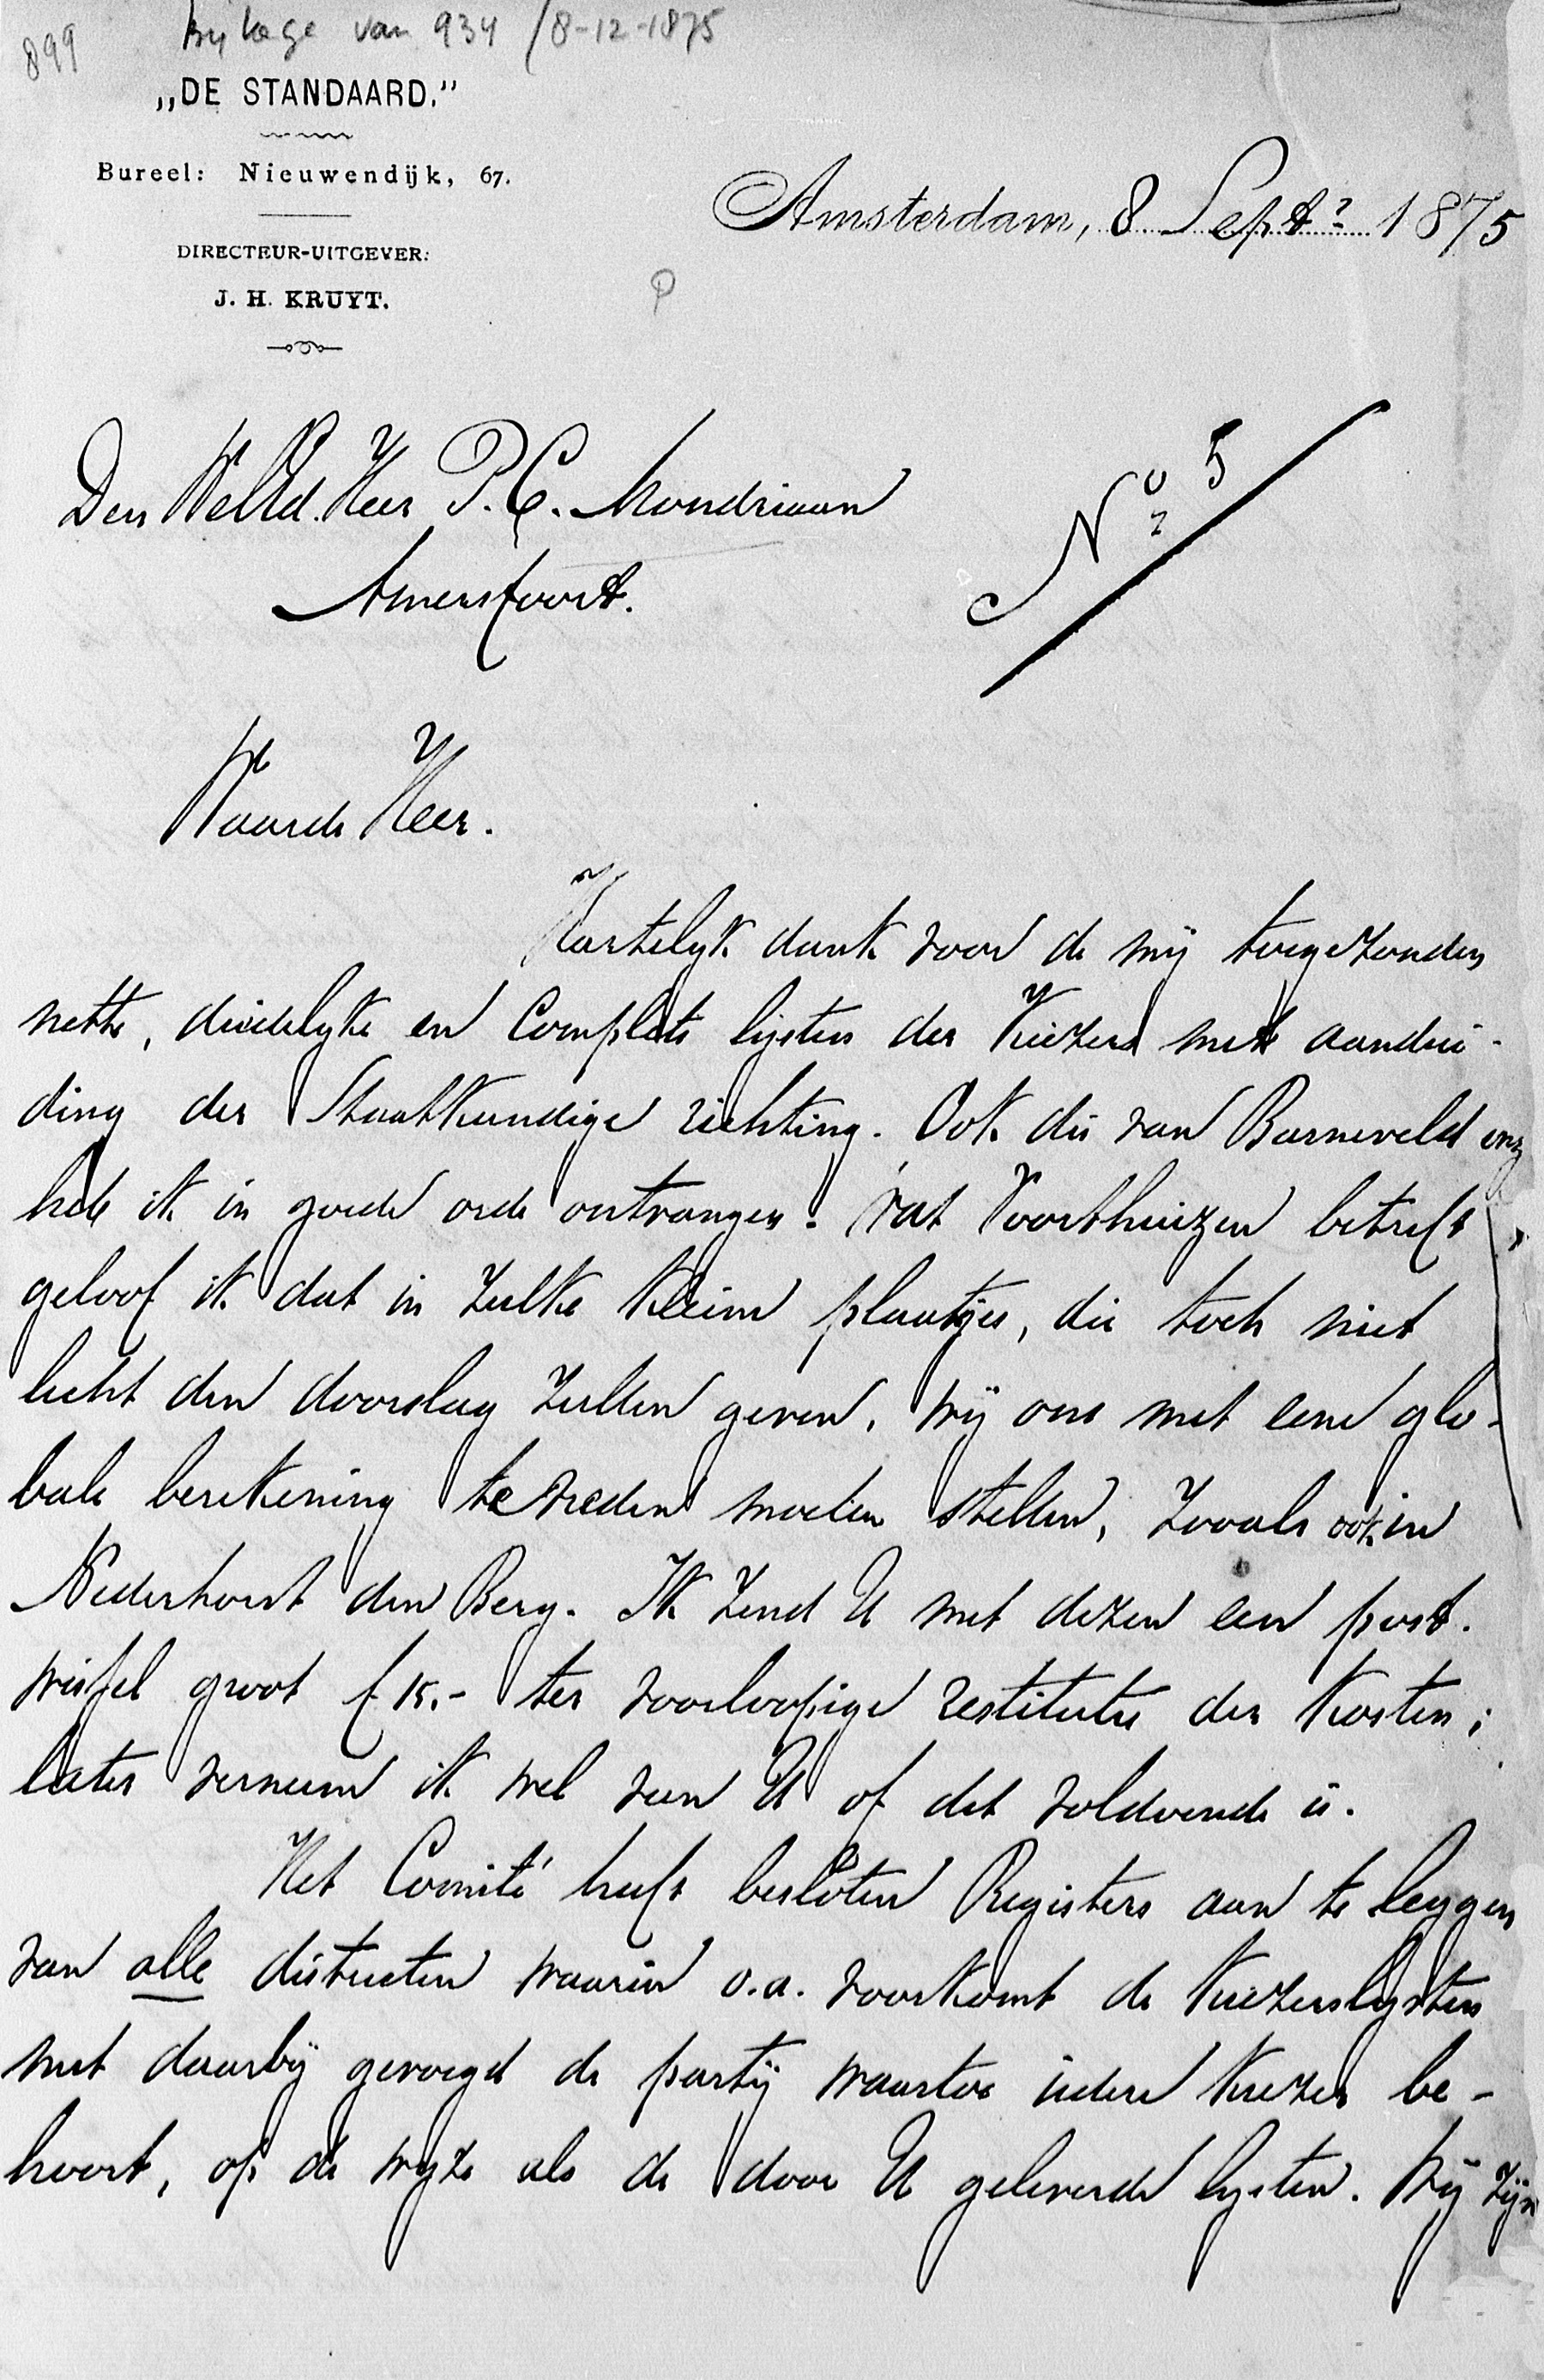 899
Bijlage van 934 / 8-12-1875
„DE STANDAARD."
Bureel: Nieuwendijk, 67.
DIRECTEUR-UITGEVER:
J. H. KRUYT.
Amsterdam, 8 Septr 1875
Den WelEd. Heer P. C. Mondriaan
Amersfoort.
No 5
Waarde Heer.
Hartelijk dank voor de mij toegezonden
nette, duidelyke en Complete lijsten der Kiezers met aandui-
ding der Staatkundige richting. Ook die van Barneveld enz
heb ik in goede orde ontvangen. Wat Voorthuizen betreft,
geloof ik dat in zulke kleine plaatsjes, die toch niet
licht den doorslag zullen geven, wij ons met eene glo-
bale berekening tevreden moeten stellen, zooals ook in
Nederhorst den Berg. Ik zend U met dezen een post-
wissel groot f 15.- ter voorloopige restitutie der kosten;
later verneem ik wel van U of dit voldoende is.
Het Comité heeft besloten Registers aan te leggen
van alle districten waarin o.a. voorkomt de Kiezerslijsten
met daarbij gevoegd de partij waartoe iedere kiezer be-
hoort, op de wijze als de door U geleverde lijsten. Wij zijn